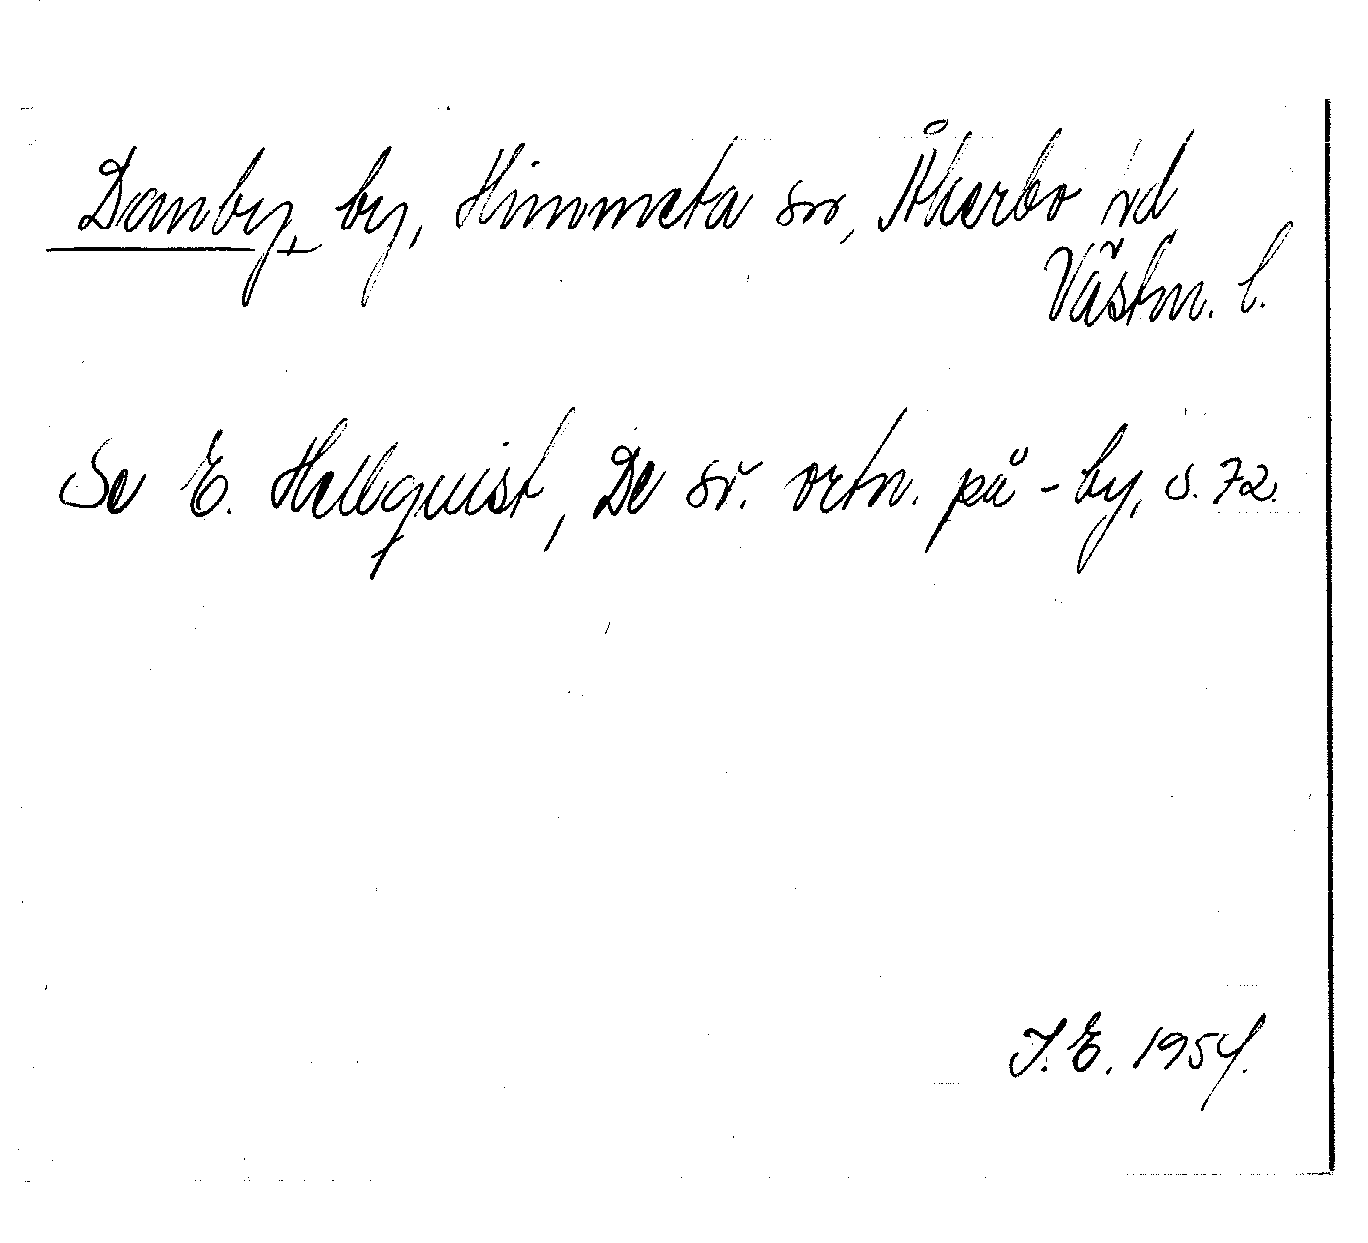 Danby, by, Himmeta sn, Åkerbo hd
Västm. l.
Se E. Hellquist, De sv. ortn. på -by, s. 72.
I. E. 1954.